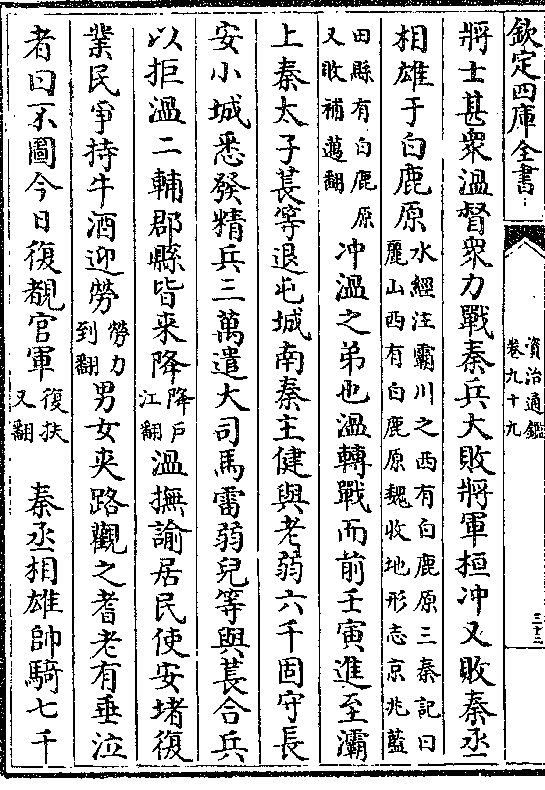 欽定四庫全書
資治通鑑
卷九十九
三十三
將士甚衆溫督衆力戰秦兵大敗將軍桓冲又敗秦丞
相雄于白鹿原水經注霸川之西有白鹿原三秦記曰
麗山西有白鹿原魏收地形志京兆藍
田縣有白鹿原
又敗補邁翻冲溫之弟也溫轉戰而前壬寅進至灞
上秦太子萇等退屯城南秦主健與老弱六千固守長
安小城悉發精兵三萬遣大司馬雷弱兒等與萇合兵
以拒溫三輔郡縣皆來降降戶
江翻溫撫諭居民使安堵復
業民爭持牛酒迎勞勞力
到翻男女夾路觀之耆老有垂泣
者曰不圖今日復覩官軍復扶
又翻秦丞相雄帥騎七千